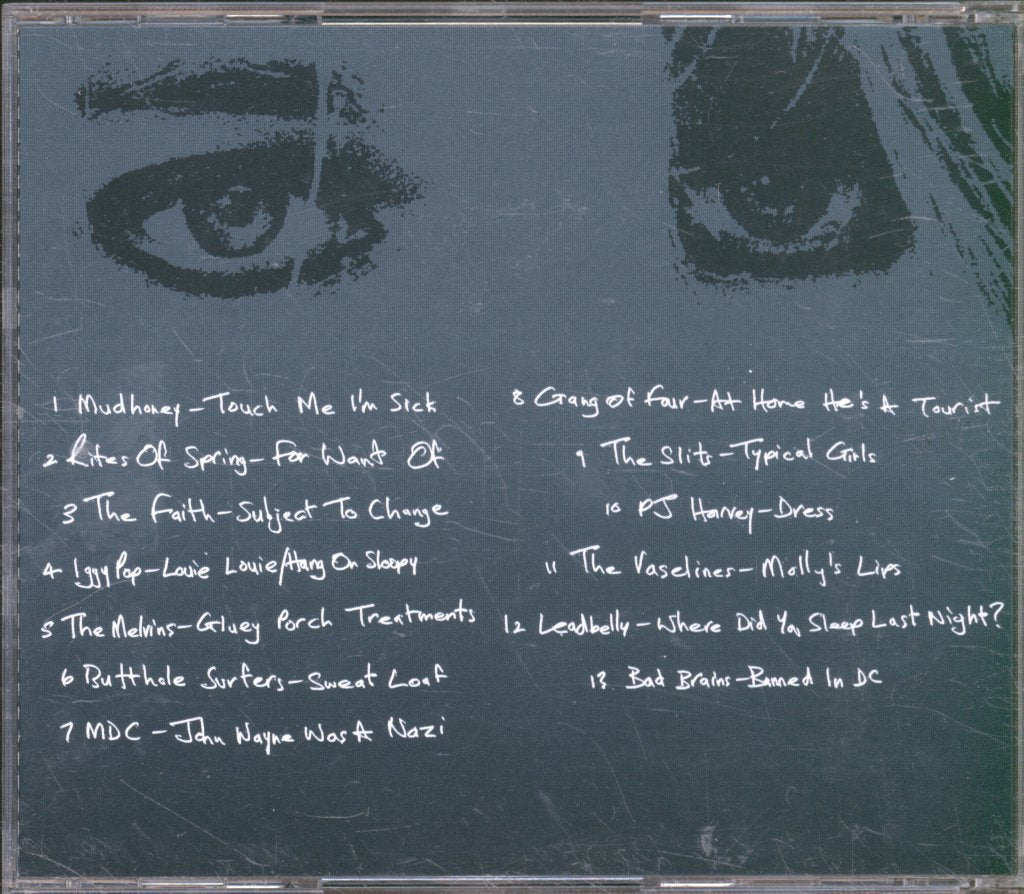 1 Mudhoney – Touch Me I'm Sick
2 Rites Of Spring – For Want Of
3 The Faith – Subject To Change
4 Iggy Pop – Louie Louie/Hang On Sloopy
5 The Melvins – Gluey Porch Treatments
6 Butthole Surfers – Sweat Loaf
7 MDC – John Wayne Was A Nazi
8 Gang Of Four – At Home He's A Tourist
9 The Slits – Typical Girls
10 PJ Harvey – Dress
11 The Vaselines – Molly's Lips
12 Leadbelly – Where Did You Sleep Last Night?
13 Bad Brains – Banned In DC